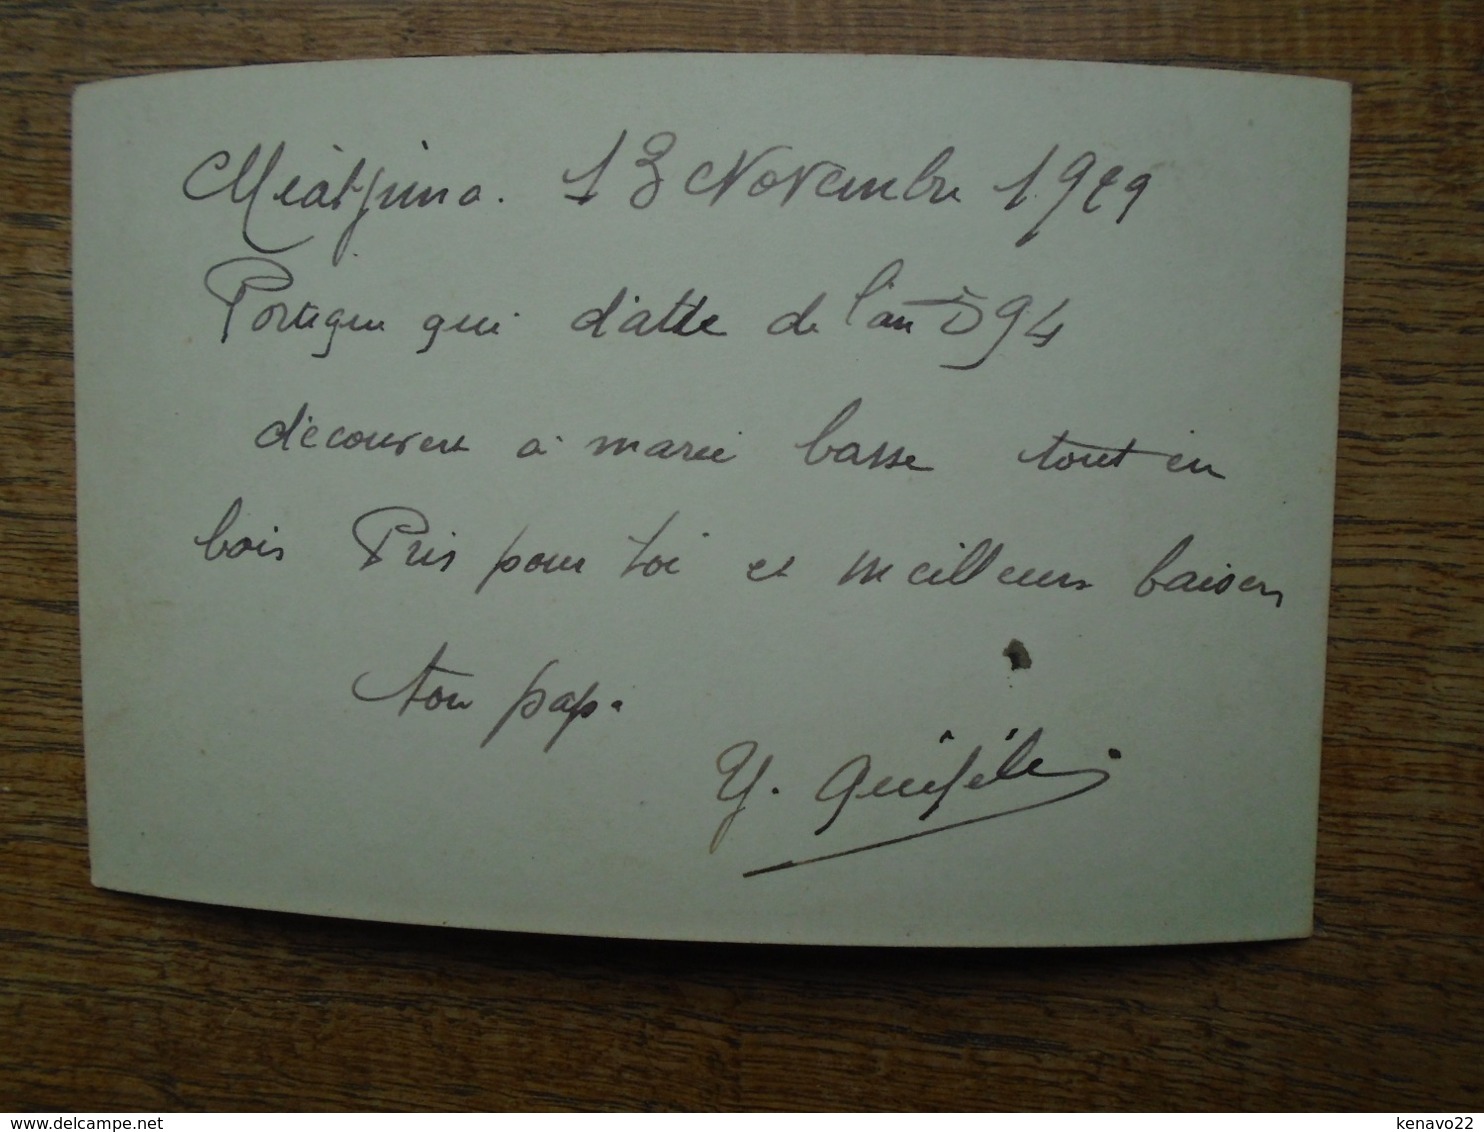 Miatjima. 13 Novembre 1929
Portique qui datte de l'an 594
découvert à marée basse tout en
bois Pris pour toi et meilleurs baisers
ton papa
Y.
delcampe.net
kenavo22